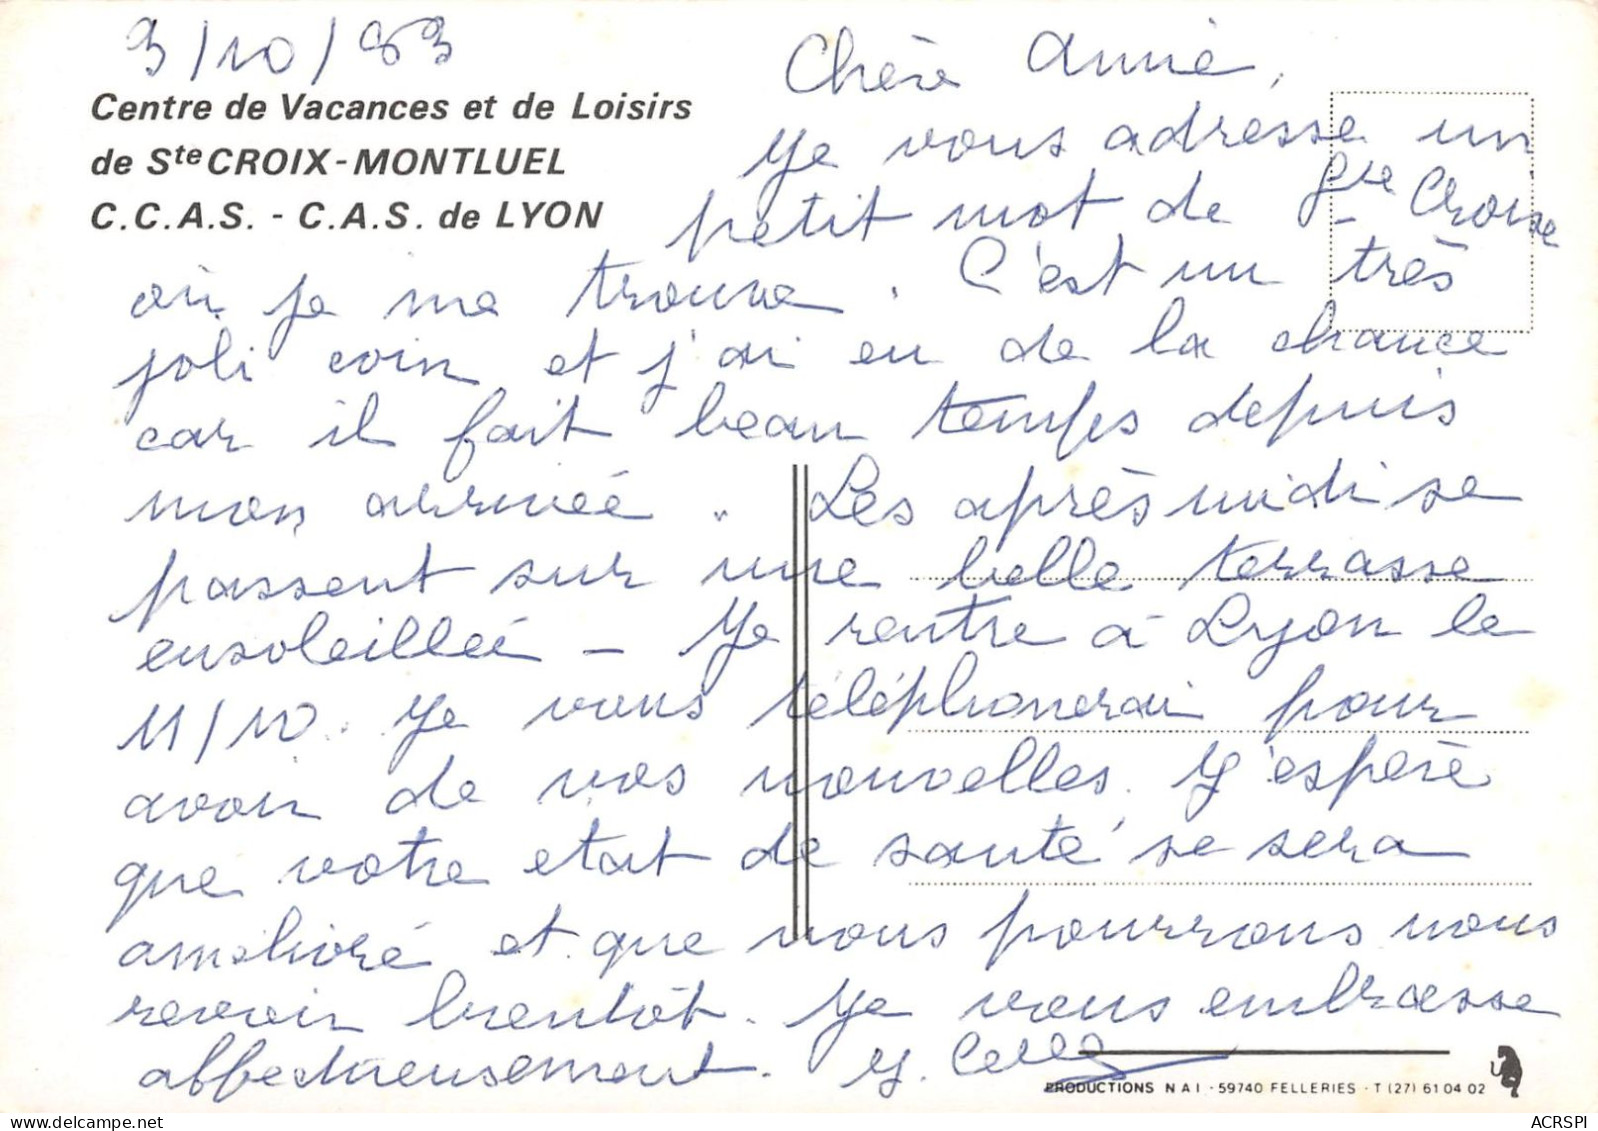 3/10/83
Centre de Vacances et de Loisirs
de Ste CROIX-MONTLUEL
C.C.A.S. - C.A.S. de LYON
Chère Annie,
Je vous adresse un
petit mot de Ste Croix
où je me trouve. C'est un très
joli coin et j'ai eu de la chance
car il fait beau temps depuis
mon arrivée. Les après midi se
passent sur une belle terrasse
ensoleillée - Je rentre à Lyon le
11/10. Je vous téléphonerai pour
avoir de vos nouvelles. J'espère
que votre etat de santé se sera
amélioré et que nous pourrons nous
revoir bientôt. Je vous embrasse
affectueusement.
PRODUCTIONS NAI - 59740 FELLERIES - T (27) 61 04 02
ACRSPI